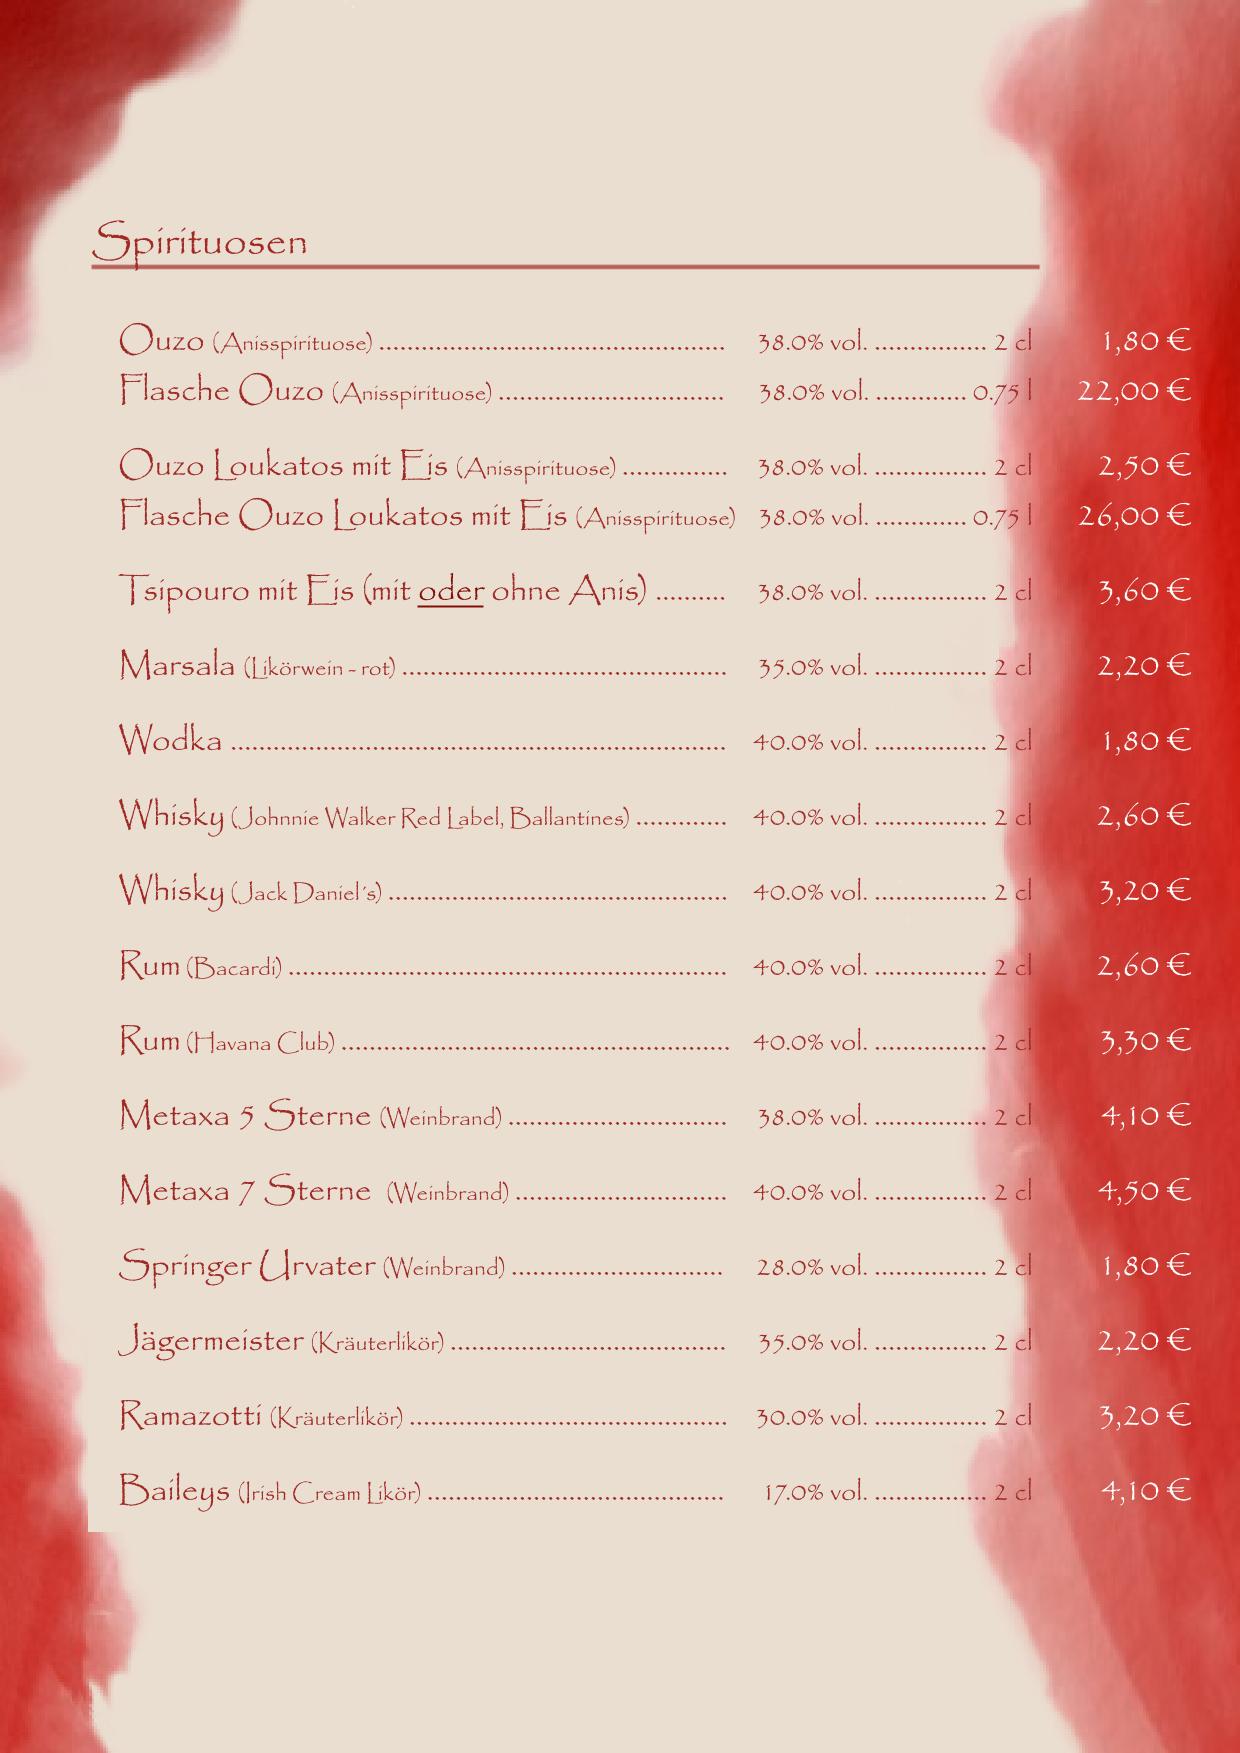 Spirituosen
Ouzo (Anisspirituose) ................................................. 38.0% vol. ................ 2 cl 1,80 €
Flasche Ouzo (Anisspirituose) ................................ 38.0% vol. ............. 0.75 l 22,00 €
Ouzo Loukatos mit Eis (Anisspirituose) ............... 38.0% vol. ................ 2 cl 2,50 €
Flasche Ouzo Loukatos mit Eis (Anisspirituose) 38.0% vol. ............. 0.75 l 26,00 €
Tsipouro mit Eis (mit oder ohne Anis) .......... 38.0% vol. ................ 2 cl 3,60 €
Marsala (Likörwein - rot) .............................................. 35.0% vol. ................ 2 cl 2,20 €
Wodka ...................................................................... 40.0% vol. ................ 2 cl 1,80 €
Whisky (Johnnie Walker Red Label, Ballantines) ............. 40.0% vol. ................ 2 cl 2,60 €
Whisky (Jack Daniel´s) ................................................ 40.0% vol. ................ 2 cl 3,20 €
Rum (Bacardi) .............................................................. 40.0% vol. ................ 2 cl 2,60 €
Rum (Havana Club) ....................................................... 40.0% vol. ................ 2 cl 3,30 €
Metaxa 5 Sterne (Weinbrand) ............................... 38.0% vol. ................ 2 cl 4,10 €
Metaxa 7 Sterne (Weinbrand) .............................. 40.0% vol. ................ 2 cl 4,50 €
Springer Urvater (Weinbrand) .............................. 28.0% vol. ................ 2 cl 1,80 €
Jägermeister (Kräuterlikör) ....................................... 35.0% vol. ................ 2 cl 2,20 €
Ramazotti (Kräuterlikör) ............................................. 30.0% vol. ................ 2 cl 3,20 €
Baileys (Irish Cream Likör) .......................................... 17.0% vol. ................ 2 cl 4,10 €